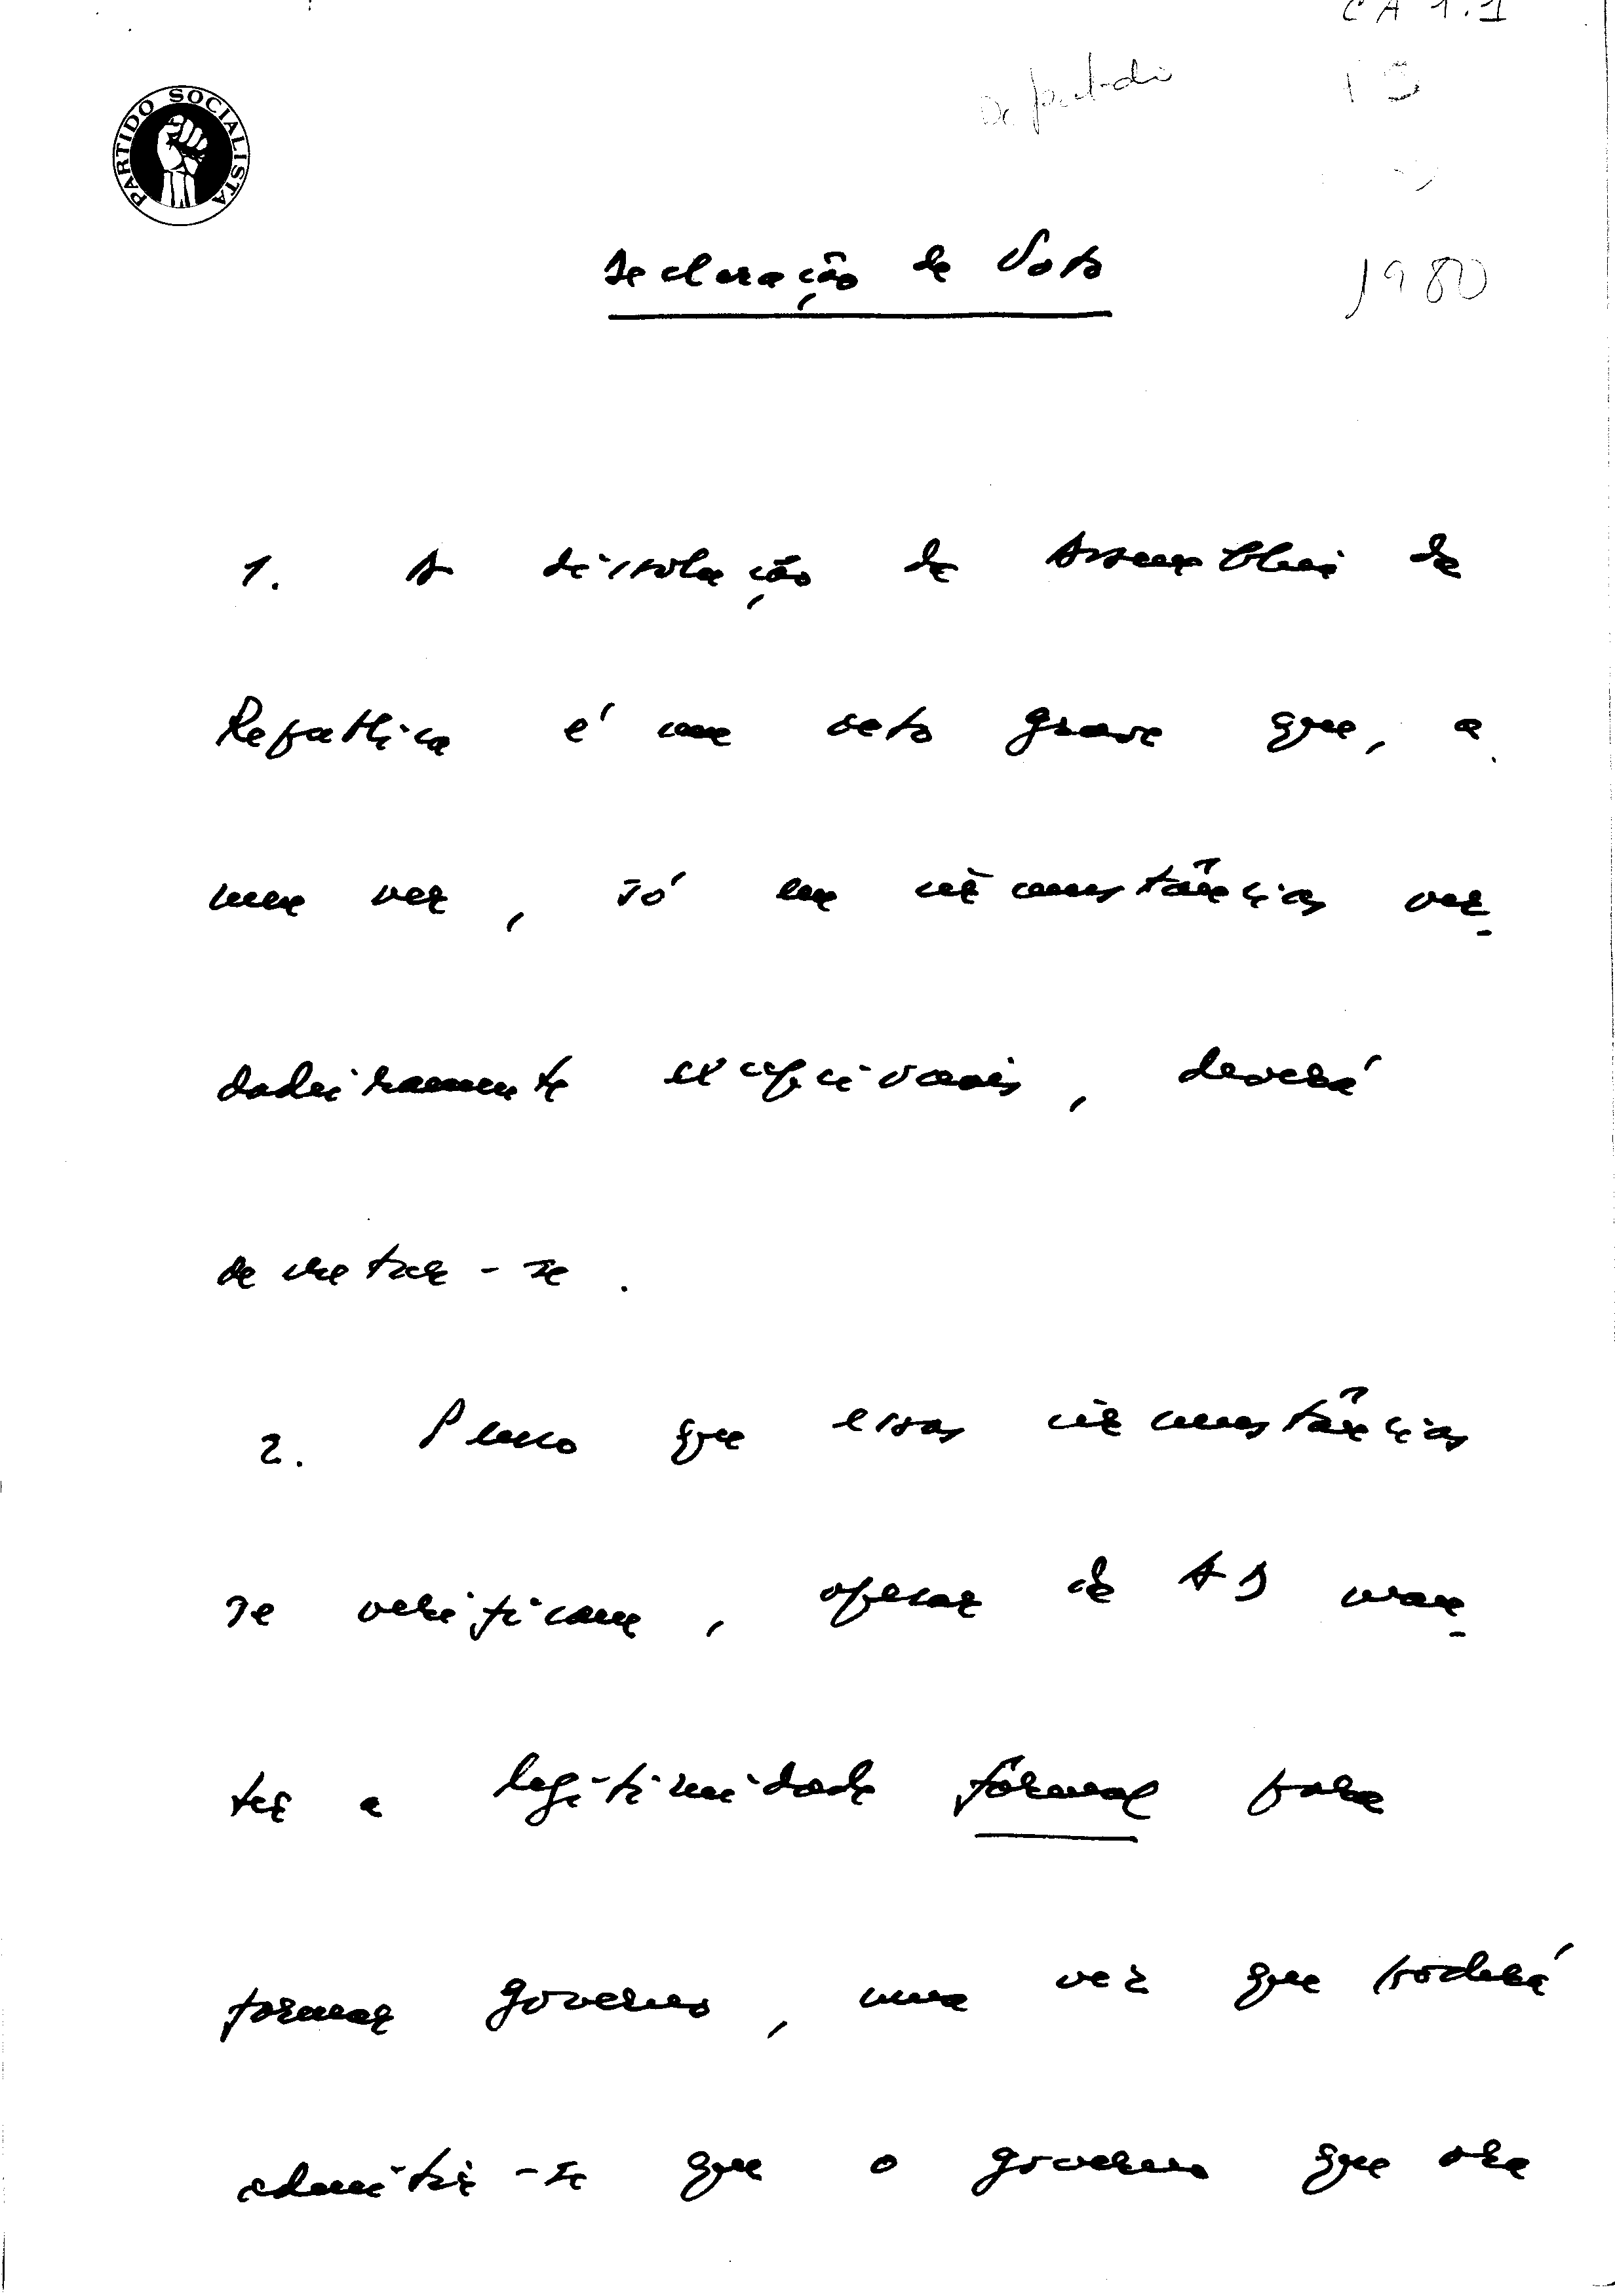 CA 1.1
Deputado
PS
PARTIDO SOCIALISTA
Declaração de Voto
1980
1. A dissolução da Assembleia da
República é um acto grave que, a
meu ver, só em circunstâncias ver-
dadeiramente excepcionais, deverá
decretar-se.
2. Penso que essas circunstâncias
se verificam, apesar da AD man-
ter a legitimidade formal para
formar governo, uma vez que poderá
admitir-se que o governo que ora